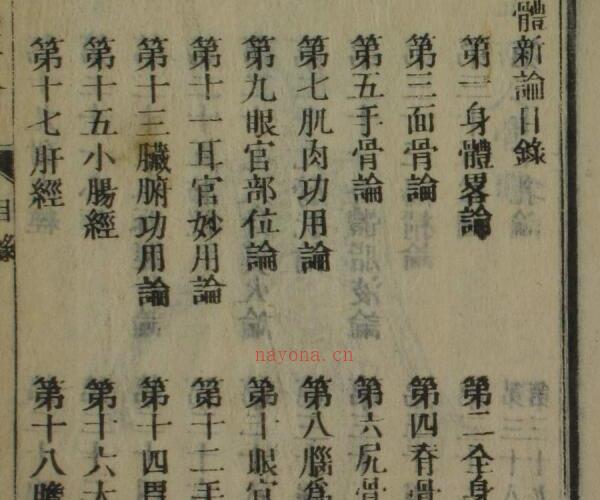 體新論目錄
第一身體畧論 第二全身
第三面骨論 第四脊骨
第五手骨論 第六尻骨
第七肌肉功用論 第八腦爲
第九眼官部位論 第十眼官
第十一耳官妙用論 第十二手
第十三臟腑功用論 第十四胃
第十五小腸經 第十六大
第十七肝經 第十八膽
目錄
nayona.cn